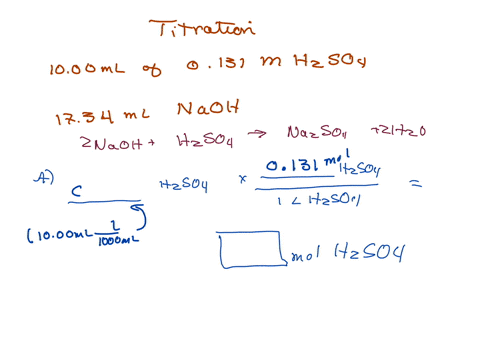 Titration
10.00mL of 0.131 M H2SO4
17.34 mL NaOH
2NaOH + H2SO4 → Na2SO4 + 2H2O
A) C H2SO4 × 0.131 mol H2SO4 / 1 L H2SO4 =
(10.00mL 1/1000mL)
mol H2SO4